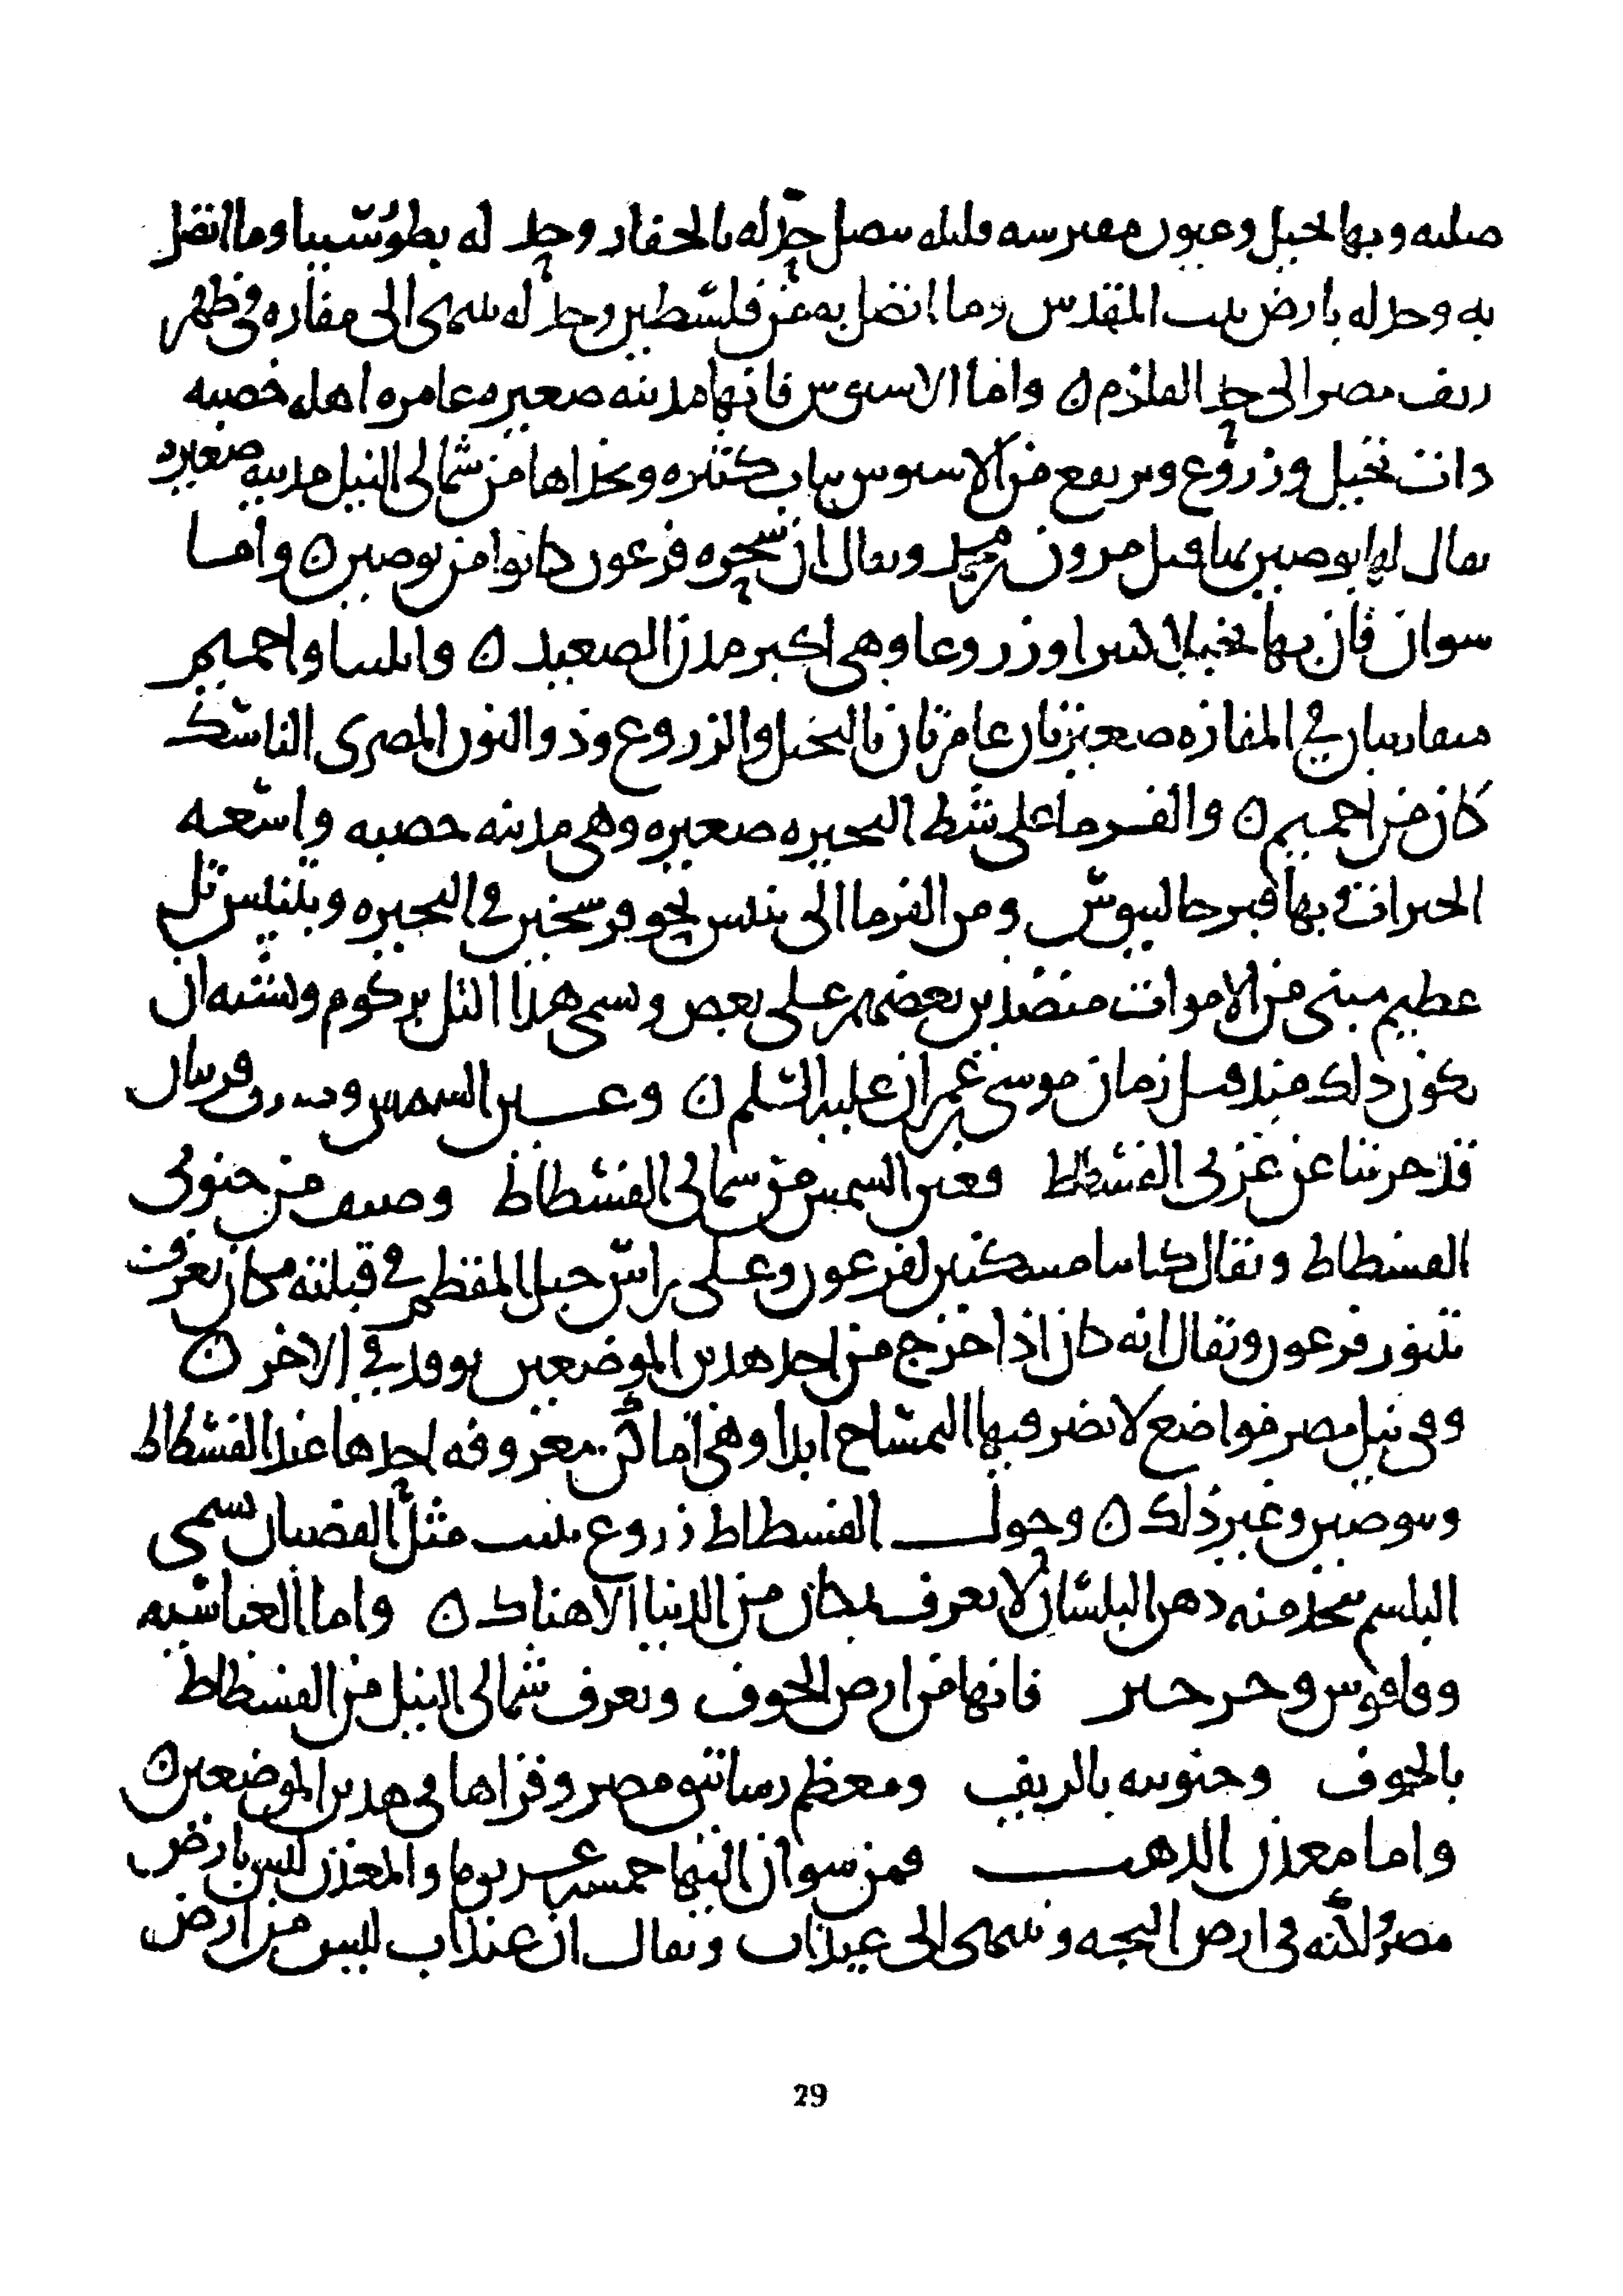 صلبه وبها نخيل وعيون مفترشه قليله متصل حد له بالجفار وحد له بطور سينا وما اتصل
به وحد له بارض بيت المقدس وما اتصل به من فلسطين وحد له ينتهى الى مفازه فى ظهر
ريف مصر الى حد القلزم ٥ واما الاشمونين فانها مدينه صغيره عامره اهله خصبه
ذات نخيل وزروع ويرتفع من الاشمونين ثياب كثيره وبحذاها من شمالى النيل مدينه صغيره
يقال لها بوصير بها قتل مرون بن محمد ويقال ان سحره فرعون كانوا من بوصير ٥ واما
سوان فان بها نخيلا كثيرا وزروعا وهى اكبر مدن الصعيد ٥ واسنا واخميم
متقاربتان في المفازه صغيرتان عامرتان بالنخيل والزروع وذو النون المصرى الناسك
كان من اخميم ٥ والفرما على شط البحيره صغيره وهى مدينه خصبه واسعه
الخيرات وبها قبر جالينوس ومن الفرما الى تنيس نحو فرسخين فى البحيره وبتنيس تل
عظيم مبنى من الاموات منضدين بعضهم على بعض وسمى هذا التل بركوم ويشبه ان
يكون ذلك منذ قبل زمان موسى بن عمران عليه السلم ٥ وعين الشمس ومنف قريتان
قد خربتا عن غربى الفسطاط فعين الشمس من شمالى الفسطاط ومنف من جنوبى
الفسطاط ويقال كانتا مسكنين لفرعون وعلى راس جبل المقطم فى قبلته مكان يعرف
بتنور فرعون ويقال انه كان اذا خرج من احد هذين الموضعين يوقد في الاخر ٥
وفى نيل مصر مواضع لا يضر فيها التمساح ابدا وهى اماكن معروفه احدها عند الفسطاط
وبوصير وغير ذلك ٥ وحول الفسطاط زروع ينبت مثل القضبان تسمى
البلسم يتخذ منه دهن البلسان لا يعرف بمكان من الدنيا الا هناك ٥ واما العباسيه
وفاقوس وجرجير فانها من ارض الحوف ويعرف شمالى النيل من الفسطاط
بالحوف وجنوبيه بالريف ومعظم رساتيق مصر وقراها فى هذين الموضعين ٥
واما معدن الذهب فمن سوان اليها خمسه عشر يوما والمعدن ليس بارض
مصر ولكنه فى ارض البجه وينتهى الى عيذاب ويقال ان عيذاب ليس من ارض
29